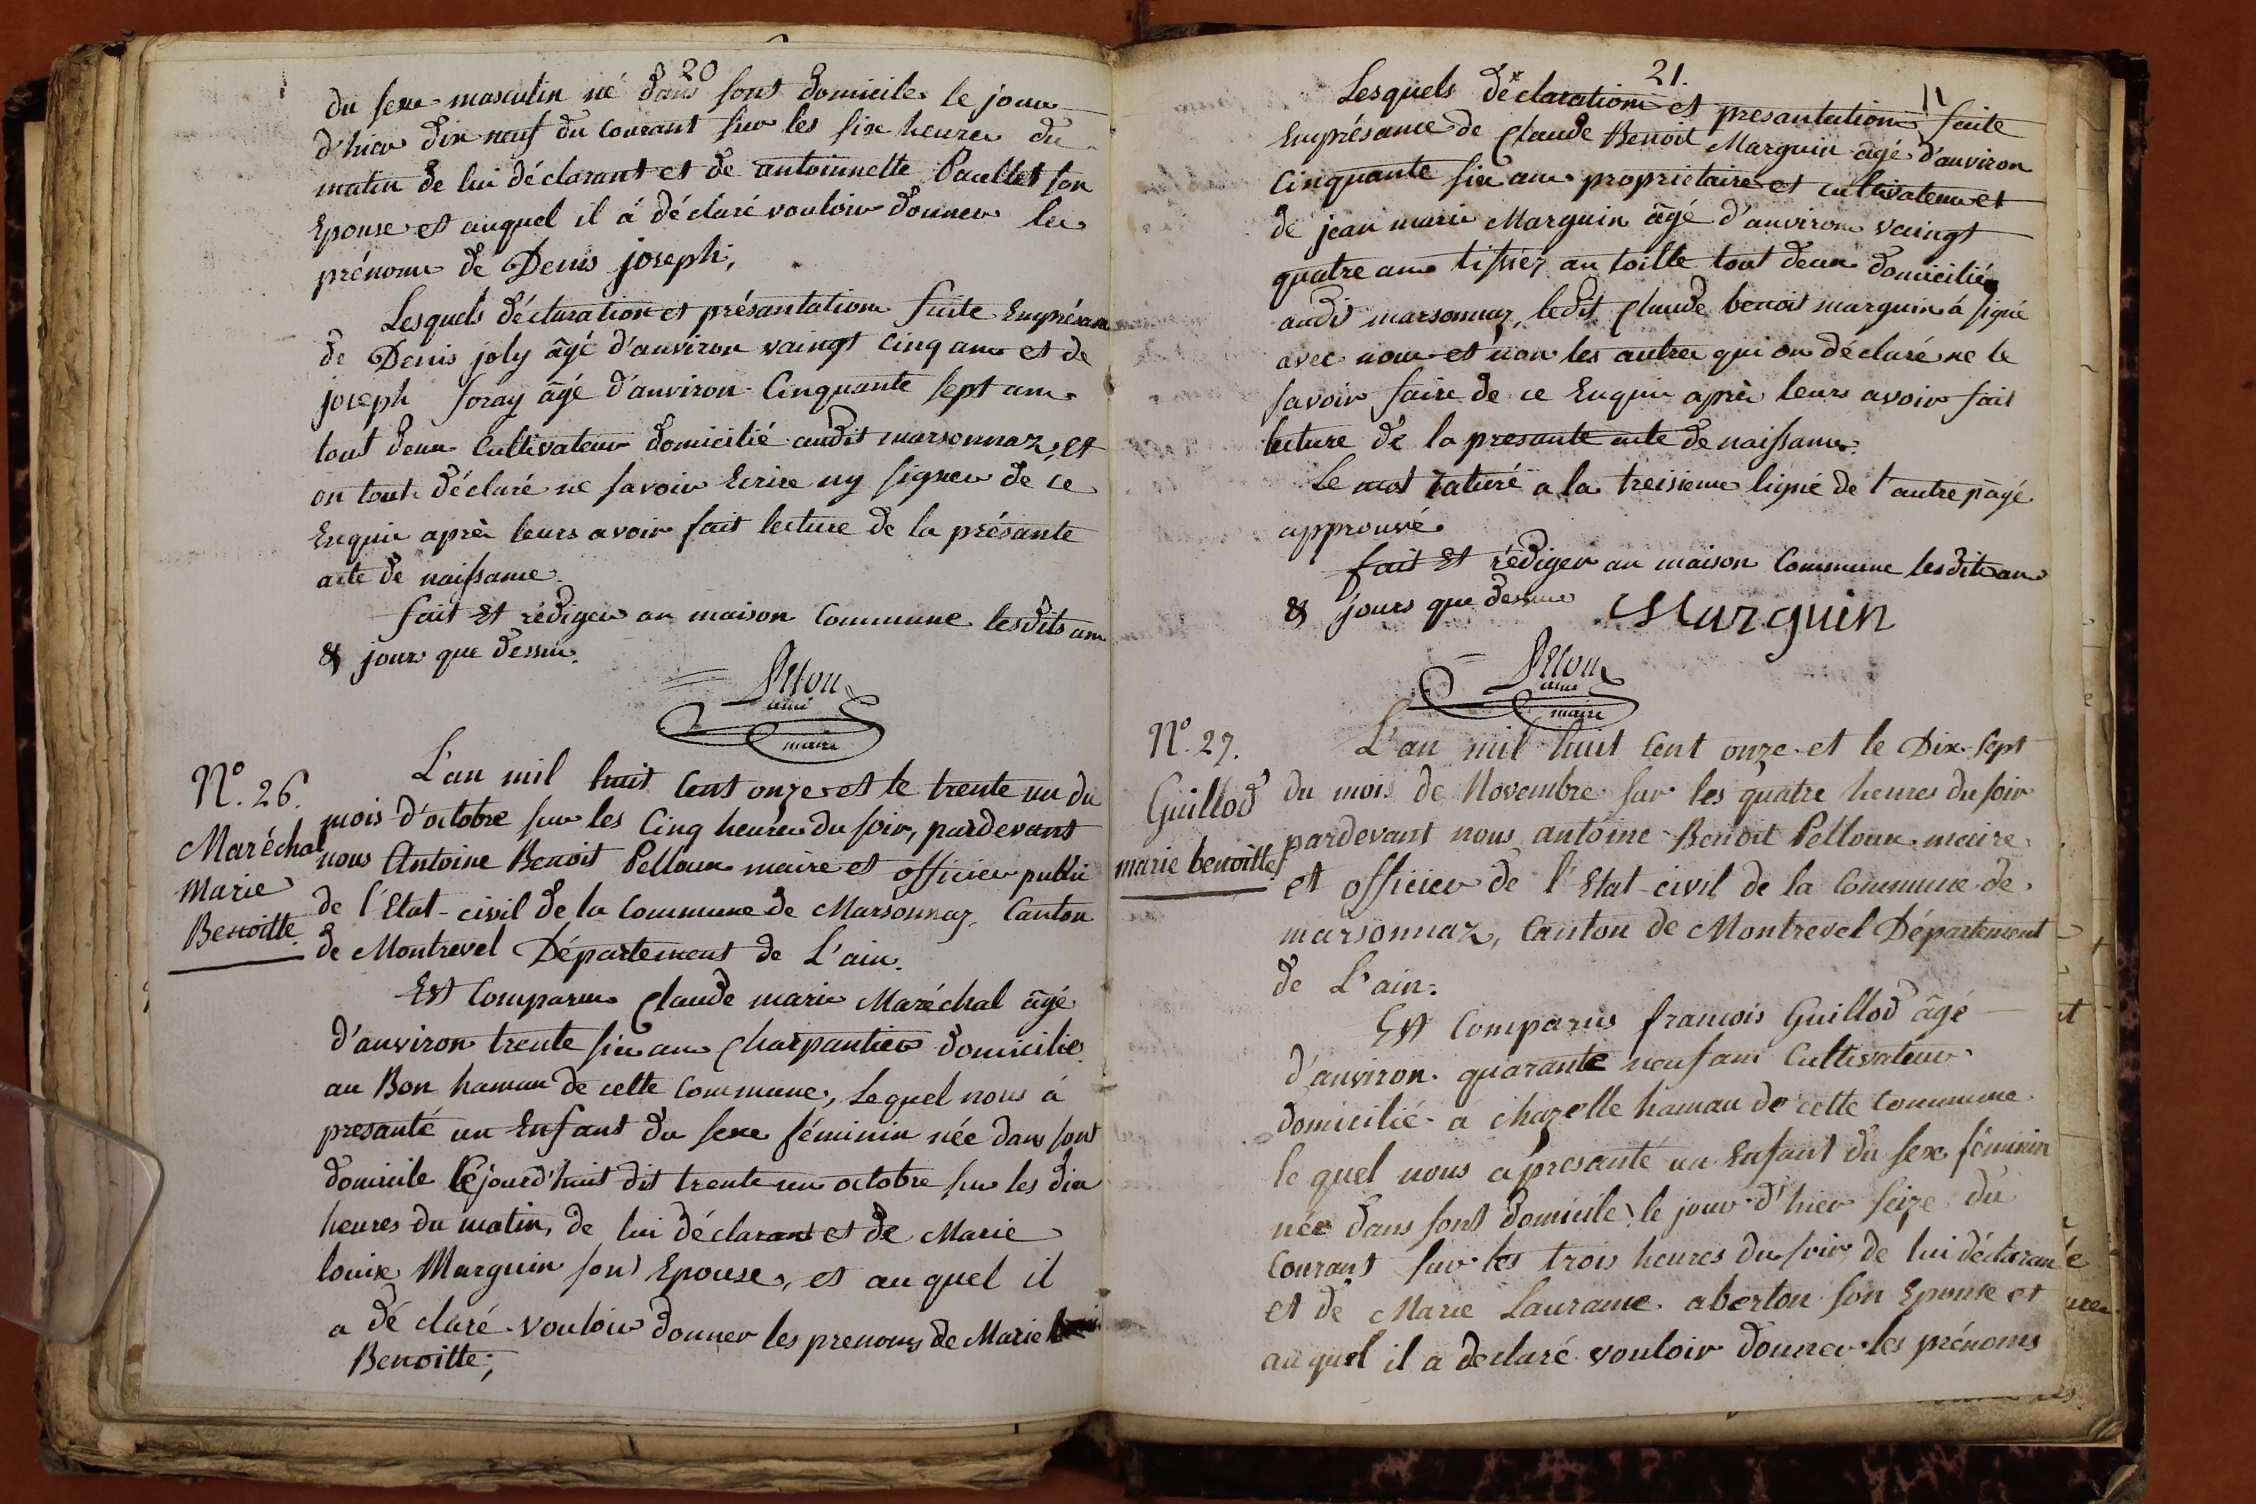 20
du sexe masculin né dans sont domicile le jour
d'hier dix neuf du courant sur les six heures du
matin de lui déclarant et de antoinnette Paullet son
Epouse et auquel il á déclaré vouloir donner les
prénoms de Denis joseph,
Lesquels déclaration et présantation faite Emprésance
de Denis joly âgé d'anviron vaingt cinq ans et de
joseph foray âgé d'anviron Cinquante sept ans
tout deux Cultivateur domicilié audit marsonnaz, et
on touts déclaré ne savoir Ecrire ny signer de ce
Enquis après leurs avoir fait lecture de la présante
acte de naissance.
fait Et rédiger an maison Commune lesdits ans
& jours que dessus.
maire
N.° 26.
Maréchal
Marie
Benoitte
L'an mil huit Cent onze et le trente un du
mois d'octobre sur les Cinq heures du soir, pardevant
nous Antoine Benoit Pelloux maire et officier public
de l'Etat-civil de la Commune de Marsonnaz, Canton
de Montrevel Département de L'ain.
Est Comparus Claude marie Maréchal âgé
d'anviron trente six ans Charpantier domicilié
au Bon hamau de cette Commune, Lequel nous á
presanté un Enfant du sexe féminin née dans sont
domicile Cejourd'huit dit trente un octobre sur les dix
heures du matin, de lui déclarant et de Marie
louise Marguin son Epouse, et auquel il
a dé claré vouloir donner les prenoms de Marie
Benoitte;
21.
Lesquels déclaration et presantation faite
Emprésance de Claude Benoit Marguin âgé d'anviron
Cinquante six ans propriétaire et cultivateur et
de jean marie Marguin âgé d'anviron vaingt
quatre ans tissiez an toille tout deux domiciliés
audit marsonnaz, ledit Claude benoit marguin á signé
avec nous et non les autres qui on déclaré ne le
savoir faire de ce Enquis après leurs avoir fait
lecture de la presante acte de naissance.
Le mot raturé a la treisieme ligné de l'autre pagé
approuvé
fait Et rédiger an maison Commune lesdits ans
& jours que dessus
Marguin
maire
N.° 27.
Guillod
marie benoitte
L'an mil huit Cent onze et le Dix-sept
du mois de Novembre sur les quatre heures du soir
pardevant nous antoine Benoit Pelloux maire
et officier de l'Etat-civil de la Commune de
marsonnaz, Canton de Montrevel Département
de L'ain.
Est Comparus francois Guillod âgé
d'anviron quarante neuf ans Cultivateur
domicilié a chazelle hamau de cette Commune
le quel nous a presanté un Enfant du sexe féminin
née dans sont domicile, le jour d'hier seize du
Courant sur les trois heures du soir, de lui déclarant
et de Marie Laurance aberton son Epouse et
au quel il a declaré vouloir donner les prénoms